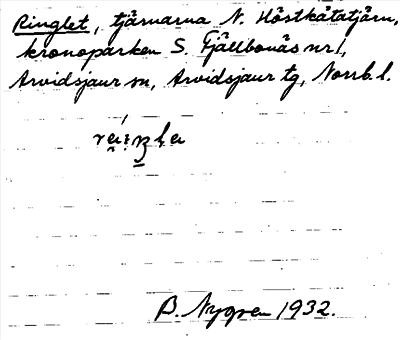 Ringlet, tjärnarna N. Höstkåtatjärn,
kronoparken S. Fjällbonäs nr 1,
Arvidsjaur sn, Arvidsjaur tg, Norrb. l.
B. Nygren 1932.